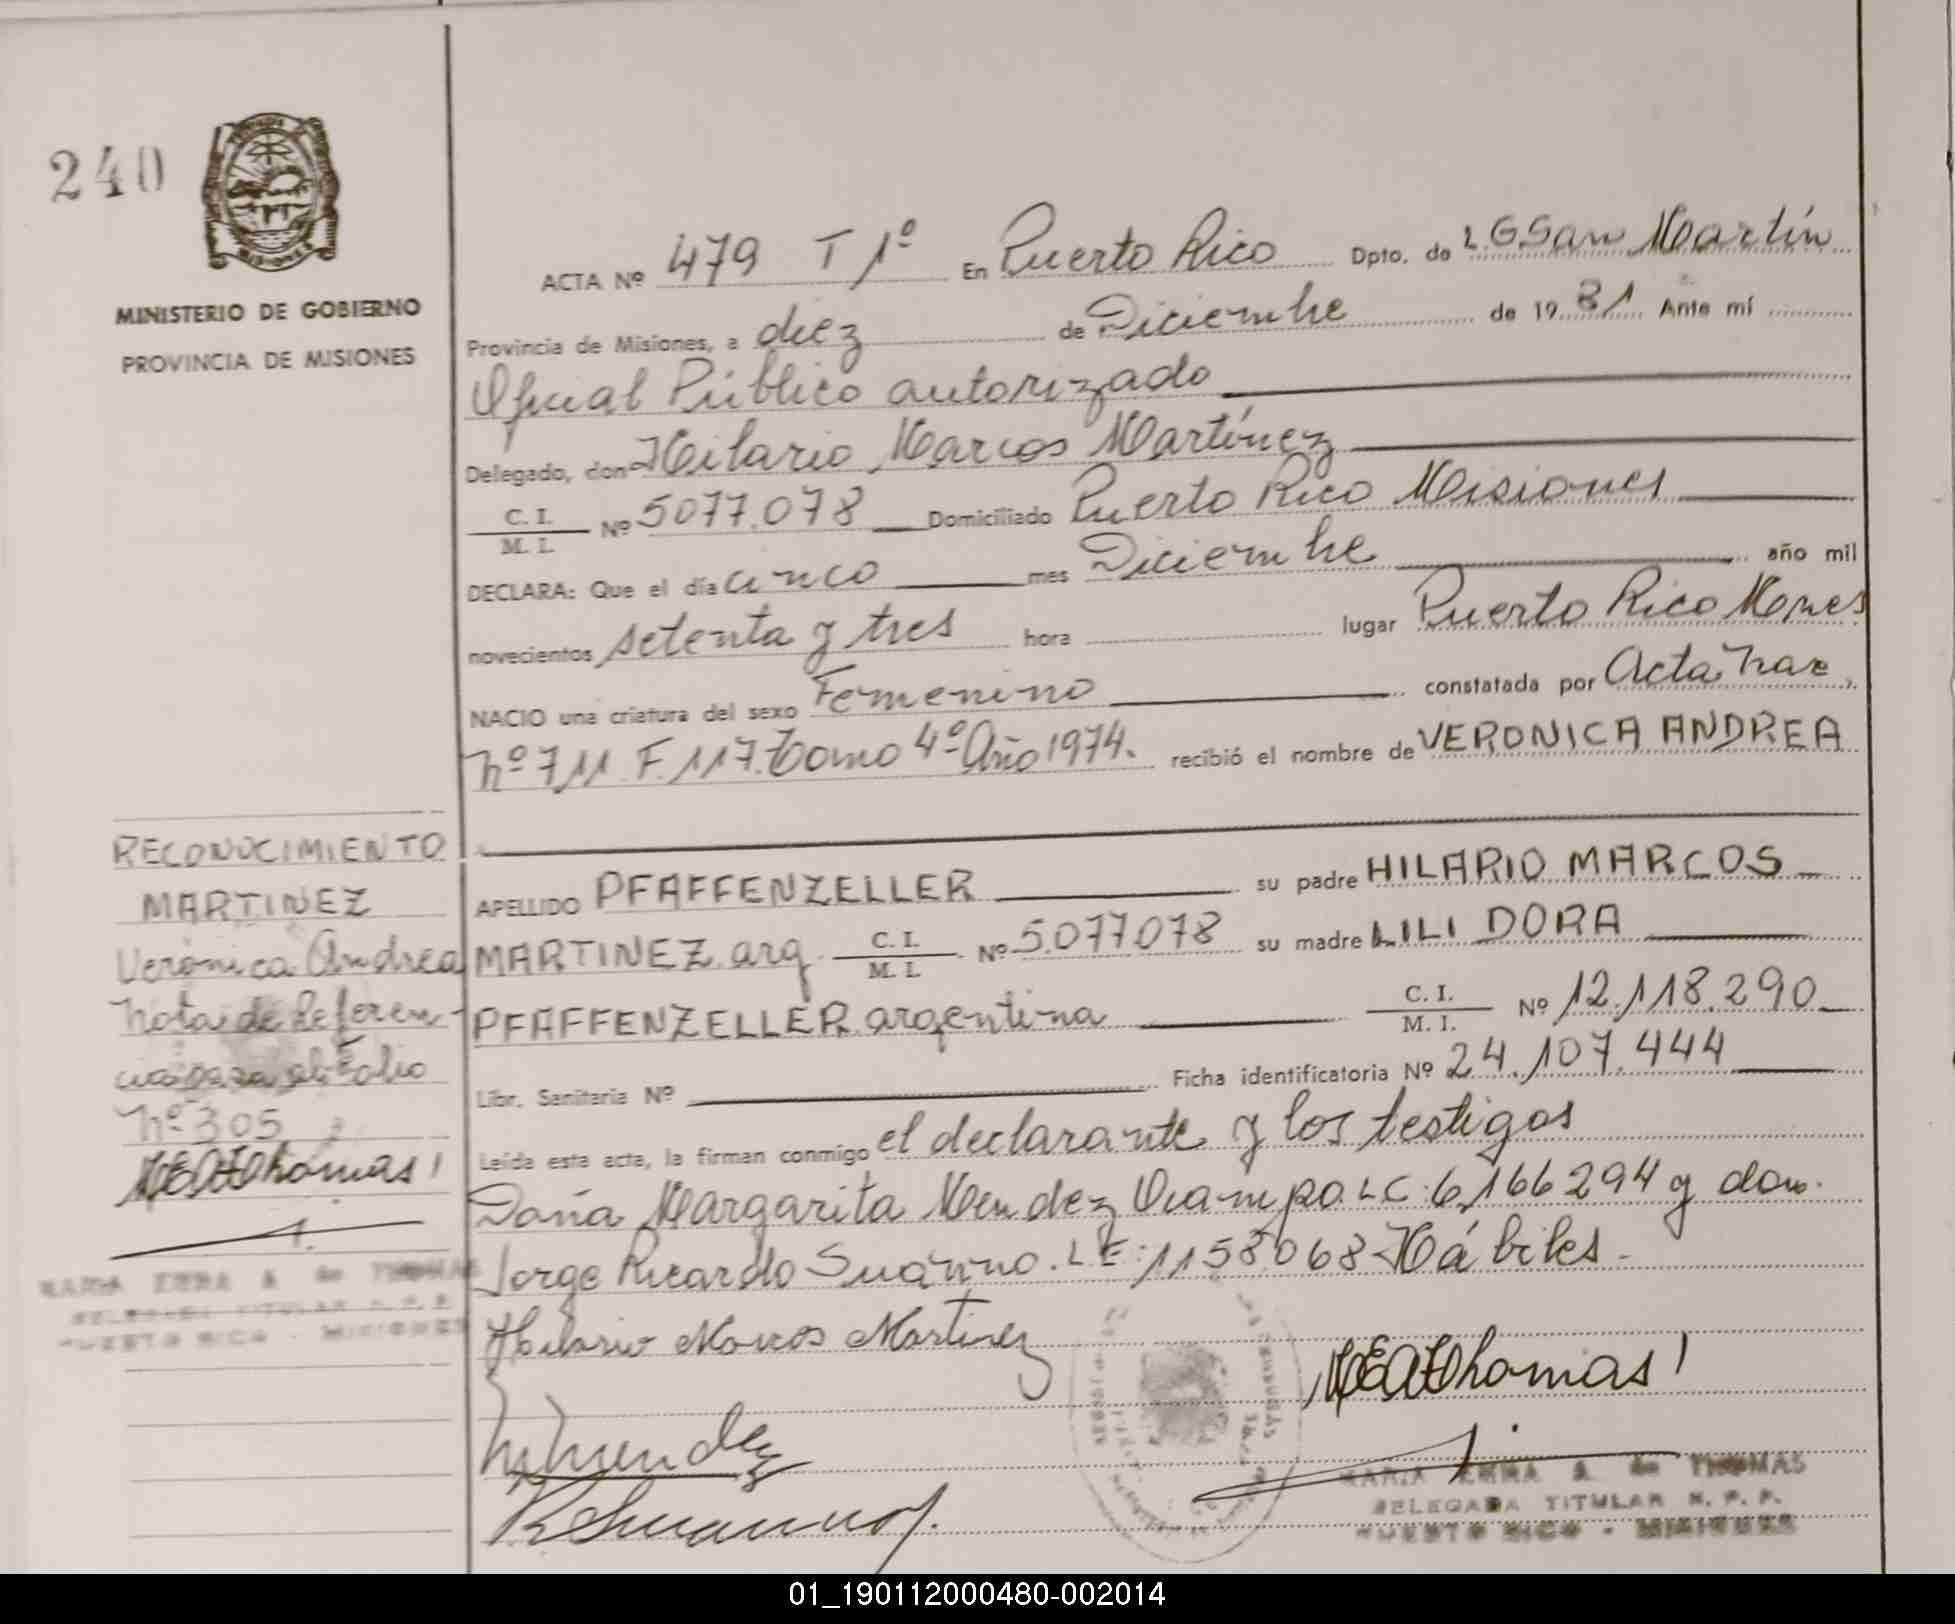 240
MINISTERIO DE GOBIERNO
PROVINCIA DE MISIONES
ACTA Nº 479 T 1º En Puerto Rico Dpto. de L.G.San Martín
Provincia de Misiones, a diez de Diciembre de 1981 Ante mí
Oficial Público autorizado
Delegado, don Hilario Marcos Martínez
C. I. / M. I. Nº 5077.078 Domiciliado Puerto Rico Misiones
DECLARA: Que el día cinco mes Diciembre año mil
novecientos setenta y tres hora lugar Puerto Rico Mones
NACIO una criatura del sexo Femenino constatada por Acta Nac
Nº 711 F.117.Tomo 4º Año 1974. recibió el nombre de VERONICA ANDREA
APELLIDO PFAFFENZELLER su padre HILARIO MARCOS
MARTINEZ arg. C. I. / M. I. Nº 5.077.078 su madre LILI DORA
PFAFFENZELLER argentina C. I. / M. I. Nº 12.118.290
Libr. Sanitaria Nº Ficha identificatoria Nº 24.107.444
Leída esta acta, la firman conmigo el declarante y los testigos
Doña Margarita Mendez Ocampo. LC: 6,166294 y don
Jorge Ricardo Suanno. LE: 1158068 Hábiles.
Hilario Marcos Martinez
RECONOCIMIENTO
MARTINEZ
Verónica Andrea
Nota de Referen-
cia pasa al Folio
Nº 305
MEAThomas
MARIA EMMA A. de THOMAS
DELEGADA TITULAR R. P. P.
PUERTO RICO - MISIONES
MEAThomas
MARIA EMMA A. de THOMAS
DELEGADA TITULAR R. P. P.
PUERTO RICO - MISIONES
01_190112000480-002014